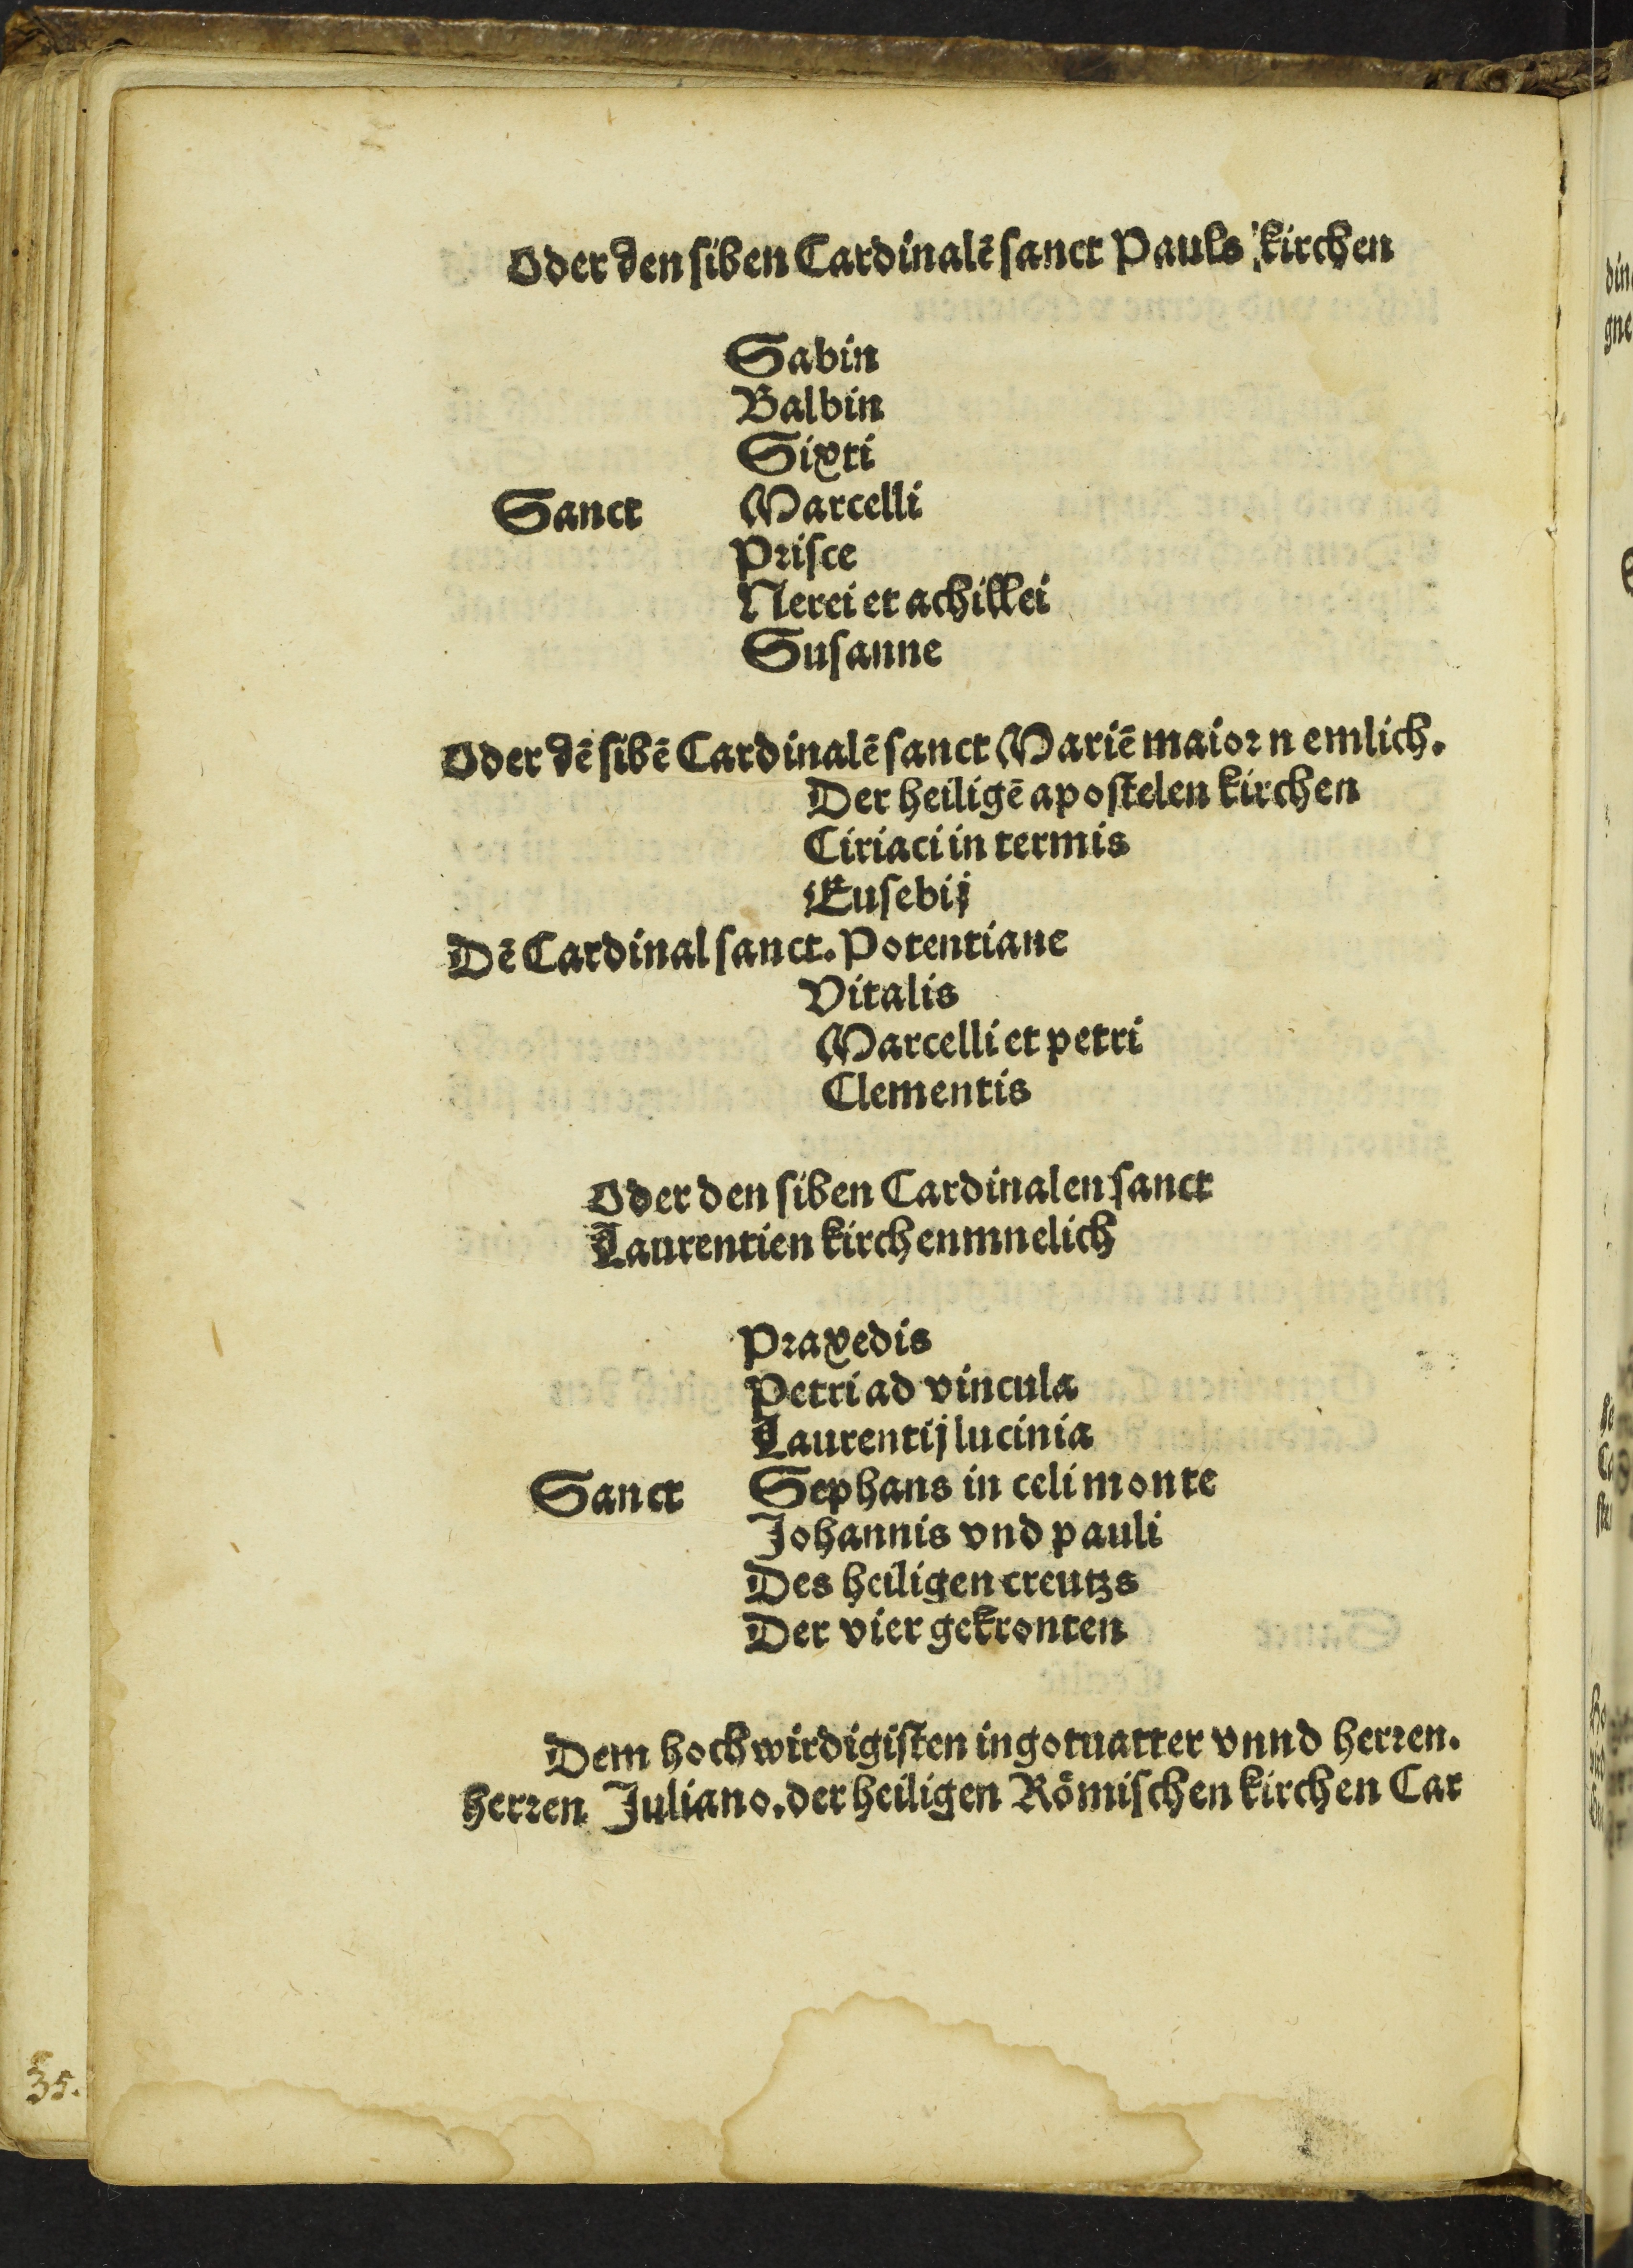 Oder den siben Cardinalē sanct Pauls kirchen
Sabin
Balbin
Sixti
Sanct Marcelli
Prisce
Nerei et achillei
Susanne
Oder dē sibē Cardinalē sanct Mariē maior n emlich.
Der heiligē apostelen kirchen
Ciriaci in termis
Eusebij
Dē Cardinal sanct. Potentiane
Vitalis
Marcelli et petri
Clementis
Oder den siben Cardinalen sanct
Laurentien kirchenmnelich
Praxedis
Petri ad vincula
Laurentij lucinia
Sanct Sephans in celi monte
Johannis vnd pauli
Des heiligen creutzs
Der vier gekronten
Dem hochwirdigisten in gotuatter vnnd herren.
herren Juliano. der heiligen Römischen kirchen Car
35.